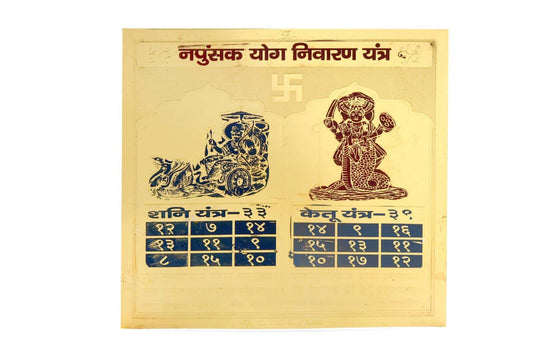 नपुंसक योग निवारण यंत्र
शनि यंत्र-३३
१२ ७ १४
१३ ११ ९
८ १५ १०
केतू यंत्र-३९
१४ ९ १६
१५ १३ ११
१० १७ १२